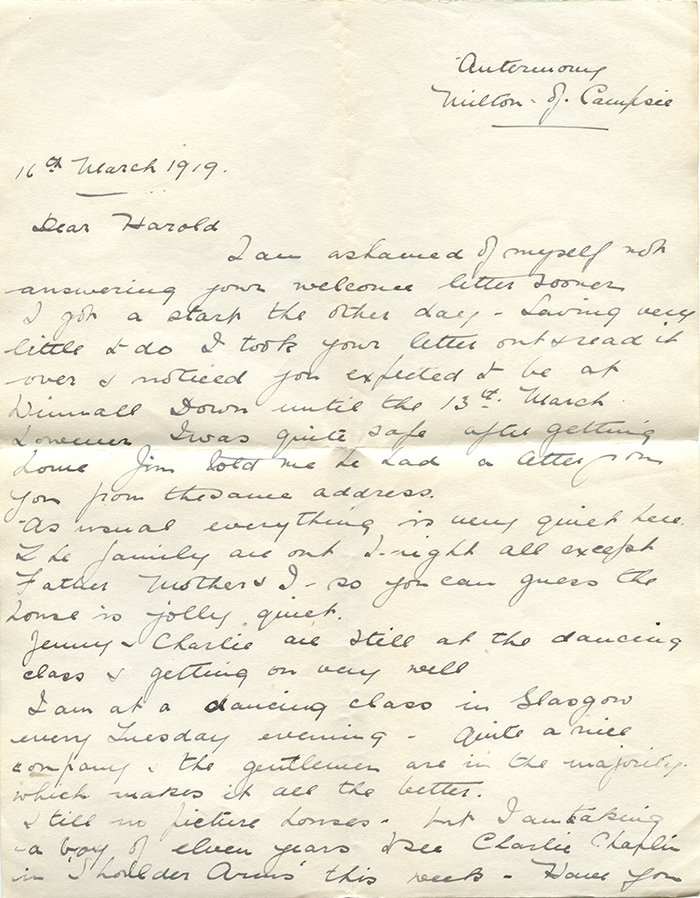 Antermony
Milton-of-Campsie
16th March 1919.
Dear Harold
I am ashamed of myself not
answering your welcome letter sooner
I got a start the other day - having very
little to do I took your letter out & read it
over & noticed you expected to be at
Winnall Down until the 13th March
however I was quite safe after getting
home Jim told me he had a letter from
you from the same address.
As usual everything is very quiet here.
The family are out to-night all except
Father Mother & I - so you can guess the
house is jolly quiet.
Jenny & Charlie are still at the dancing
class & getting on very well
I am at a dancing class in Glasgow
every Tuesday evening - Quite a nice
company & the gentlemen are in the majority.
which makes it all the better.
Still no picture houses - but I am taking
a boy of eleven years to see Charlie Chaplin
in 'Shoulder Arms' this week - Have you